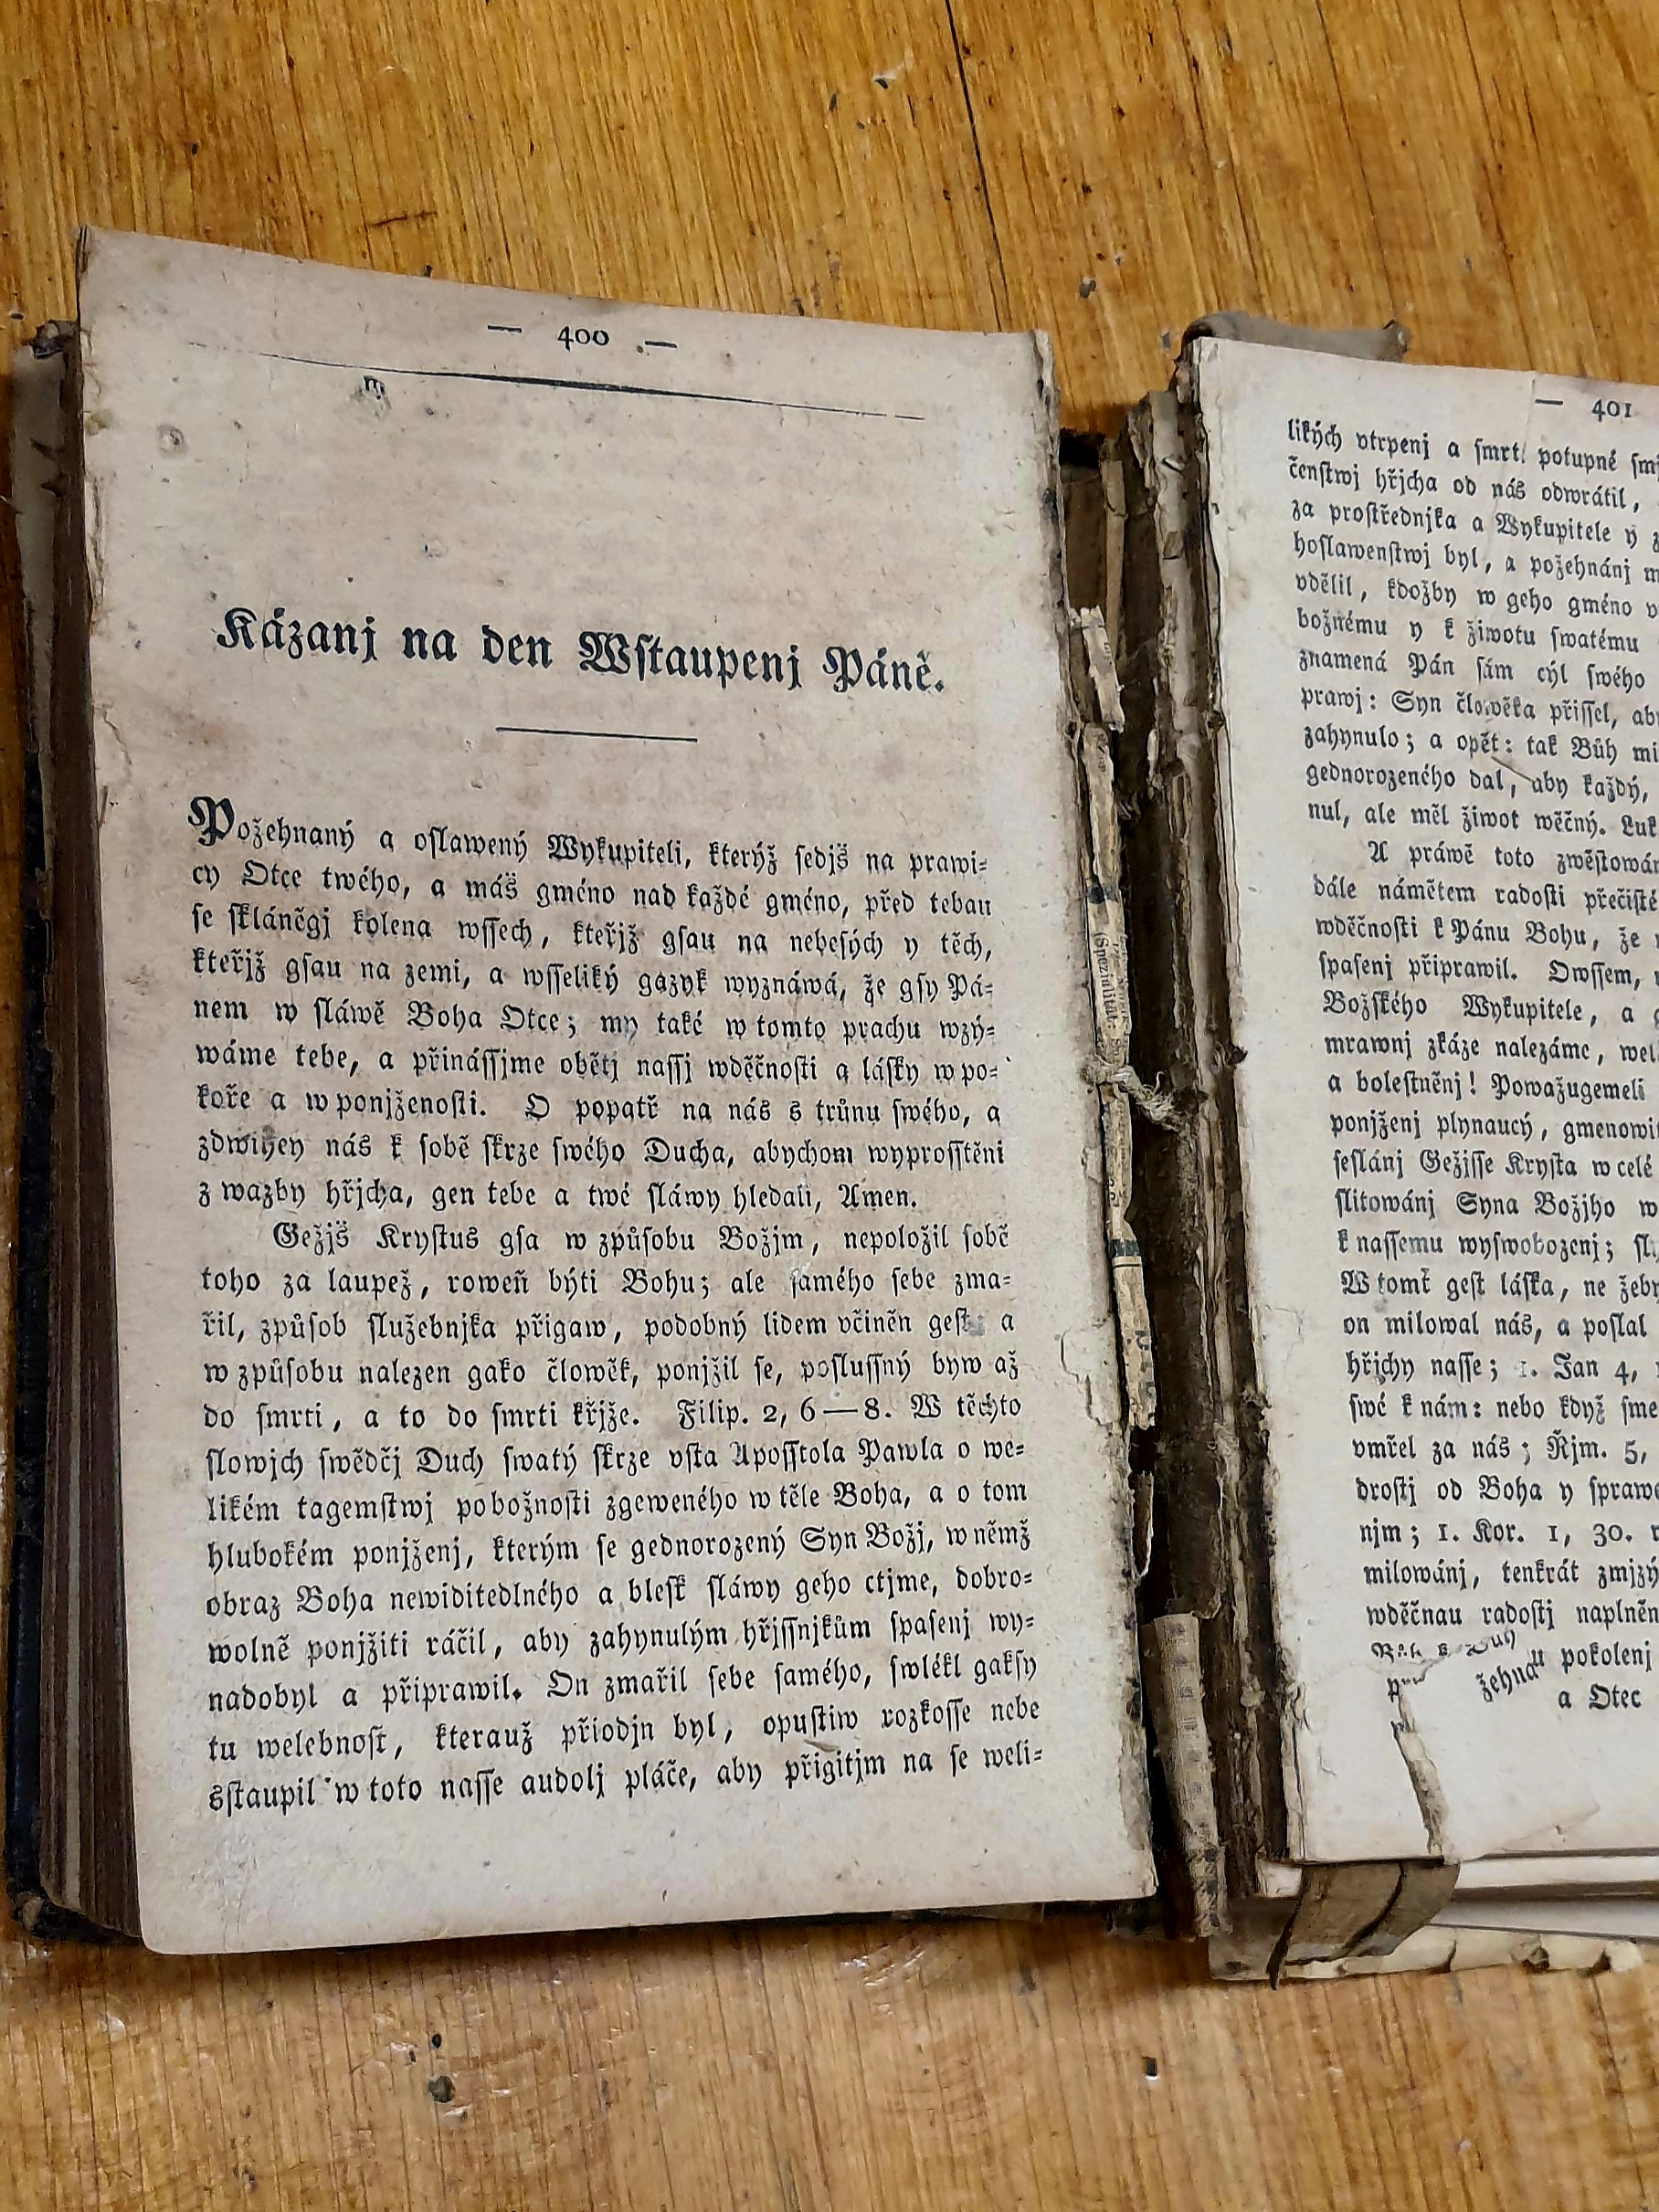 — 400 —
Kázanj na den Wstaupenj Páně.
Požehnaný a oslawený Wykupiteli, kterýž sedjš na prawi=
cy Otce twého, a máš gméno nad každé gméno, před tebau
se skláněgj kolena wssech, kteřjž gsau na nebesých y těch,
kteřjž gsau na zemi, a wsseliký gazyk wyznáwá, že gsy Pá=
nem w sláwě Boha Otce; my také w tomto prachu wzý=
wáme tebe, a přinássjme obětj nassj wděčnosti a lásky w po=
koře a w ponjženosti. O popatř na nás s trůnu swého, a
zdwihey nás k sobě skrze swého Ducha, abychom wyprosstěni
z wazby hřjcha, gen tebe a twé sláwy hledali, Amen.
Gežjš Krystus gsa w způsobu Božjm, nepoložil sobě
toho za laupež, roweň býti Bohu; ale samého sebe zma=
řil, způsob služebnjka přigaw, podobný lidem včiněn gest a
w způsobu nalezen gako člowěk, ponjžil se, poslussný byw až
do smrti, a to do smrti křjže. Filip. 2, 6—8. W těchto
slowjch swědčj Duch swatý skrze vsta Aposstola Pawla o we=
likém tagemstwj pobožnosti zgeweného w těle Boha, a o tom
hlubokém ponjženj, kterým se gednorozený Syn Božj, w němž
obraz Boha newiditedlného a blesk sláwy geho ctjme, dobro=
wolně ponjžiti ráčil, aby zahynulým hřjssnjkům spasenj wy=
nadobyl a připrawil. On zmařil sebe samého, swlékl gaksy
tu welebnost, kterauž přiodjn byl, opustiw rozkosse nebe
sstaupil w toto nasse audolj pláče, aby přigitjm na se weli=
— 401
likých vtrpenj a smrt potupné
čenstwj hřjcha od nás odwrátil,
za prostřednjka a Wykupitele y
hoslawenstwj byl, a požehnánj
vdělil, kdožby w geho gméno
božnému y k žiwotu swatému
znamená Pán sám cýl swého
prawj: Syn člowěka přissel,
zahynulo; a opět: tak Bůh
gednorozeného dal, aby každý,
nul, ale měl žiwot wěčný. Luk
A práwě toto
dále námětem radosti
wděčnosti k Pánu Bohu, že
spasenj připrawil. Owssem,
Božského Wykupitele, a
mrawnj zkáze nalezáme,
a bolestněnj! Powažugemeli
ponjženj plynaucý,
seslánj Gežjsse Krysta w celé
slitowánj Syna Božjho
k nassemu wyswobozenj;
W tomť gest láska, ne
on milowal nás, a poslal
hřjchy nasse; 1. Jan 4,
swé k nám: nebo když sme
vmřel za nás; Řjm. 5,
drostj od Boha y
njm; 1. Kor. 1, 30.
milowánj, tenkrát
wděčnau radostj
pokolenj
žehna
a Otec